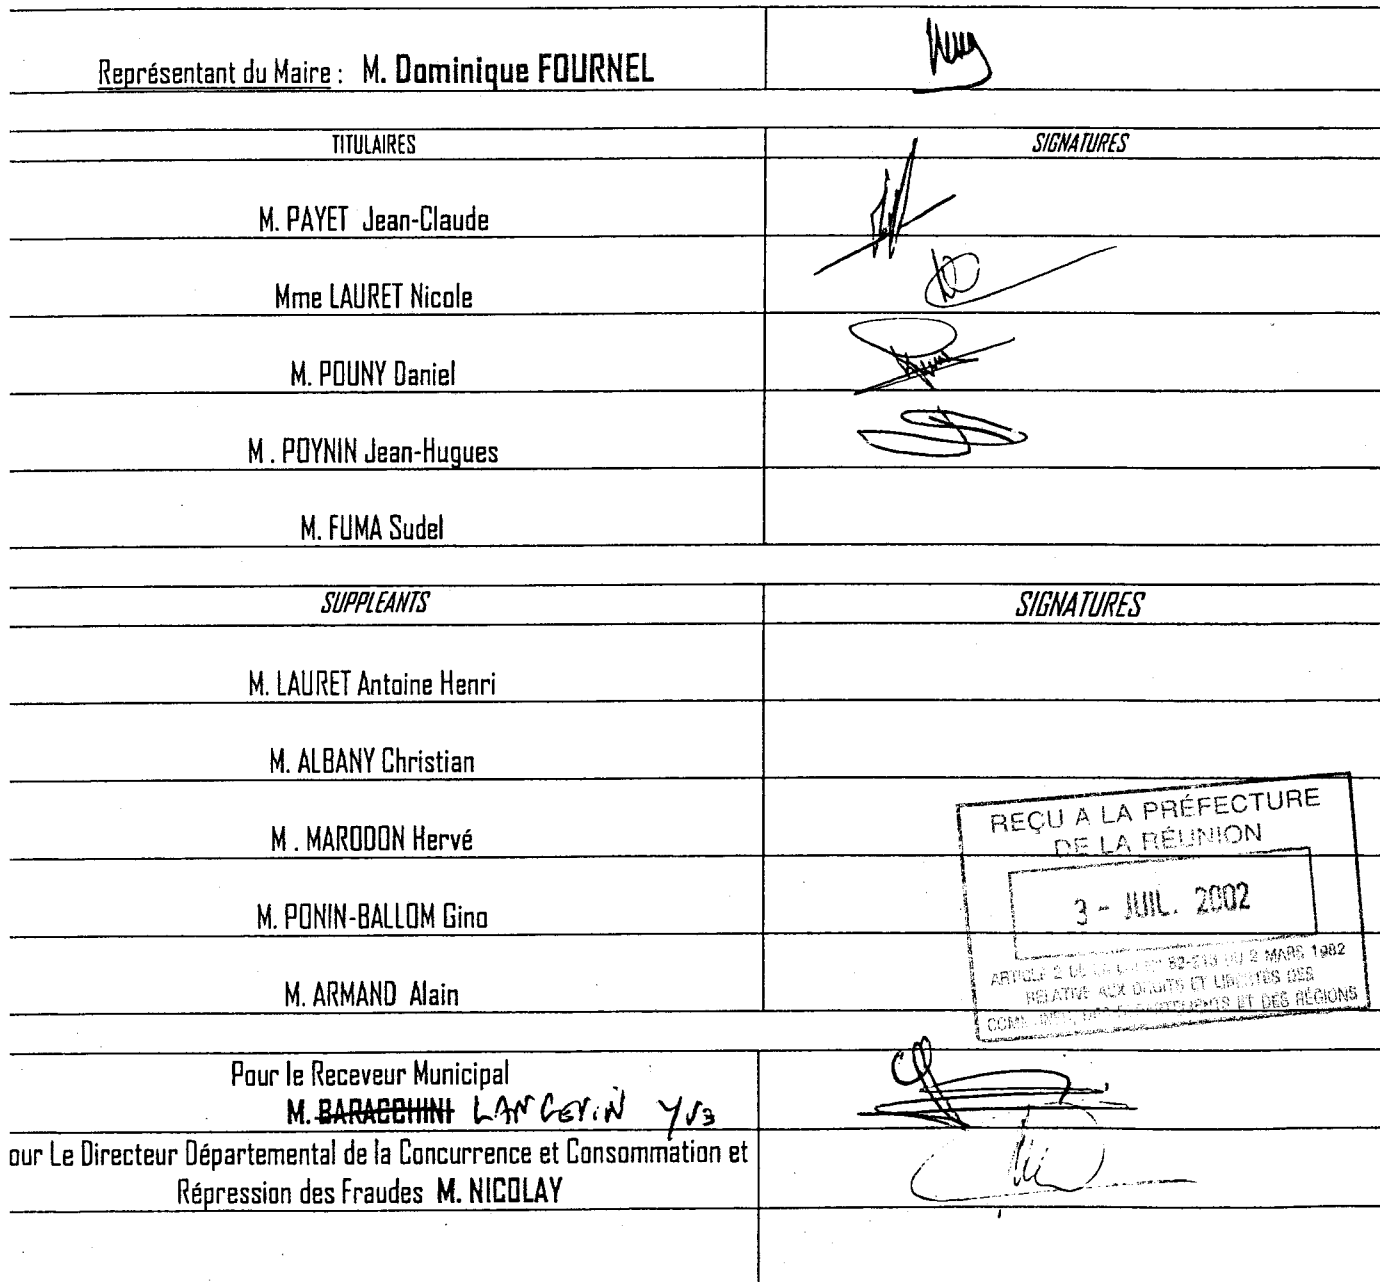 Représentant du Maire : M. Dominique FOURNEL
TITULAIRES SIGNATURES
M. PAYET Jean-Claude
Mme LAURET Nicole
M. POUNY Daniel
M. POYNIN Jean-Hugues
M. FUMA Sudel
SUPPLEANTS SIGNATURES
M. LAURET Antoine Henri
M. ALBANY Christian
M. MARODON Hervé
M. PONIN-BALLOM Gino
M. ARMAND Alain
REÇU A LA PRÉFECTURE
DE LA RÉUNION
3 - JUIL. 2002
ARTICLE 2 DE LA LOI N° 82-213 DU 2 MARS 1982
RELATIVE AUX DROITS ET LIBERTÉS DES
COMMUNES, DES DÉPARTEMENTS ET DES RÉGIONS
Pour le Receveur Municipal
M. BARACCHINI LANGEVIN
our Le Directeur Départemental de la Concurrence et Consommation et
Répression des Fraudes M. NICOLAY